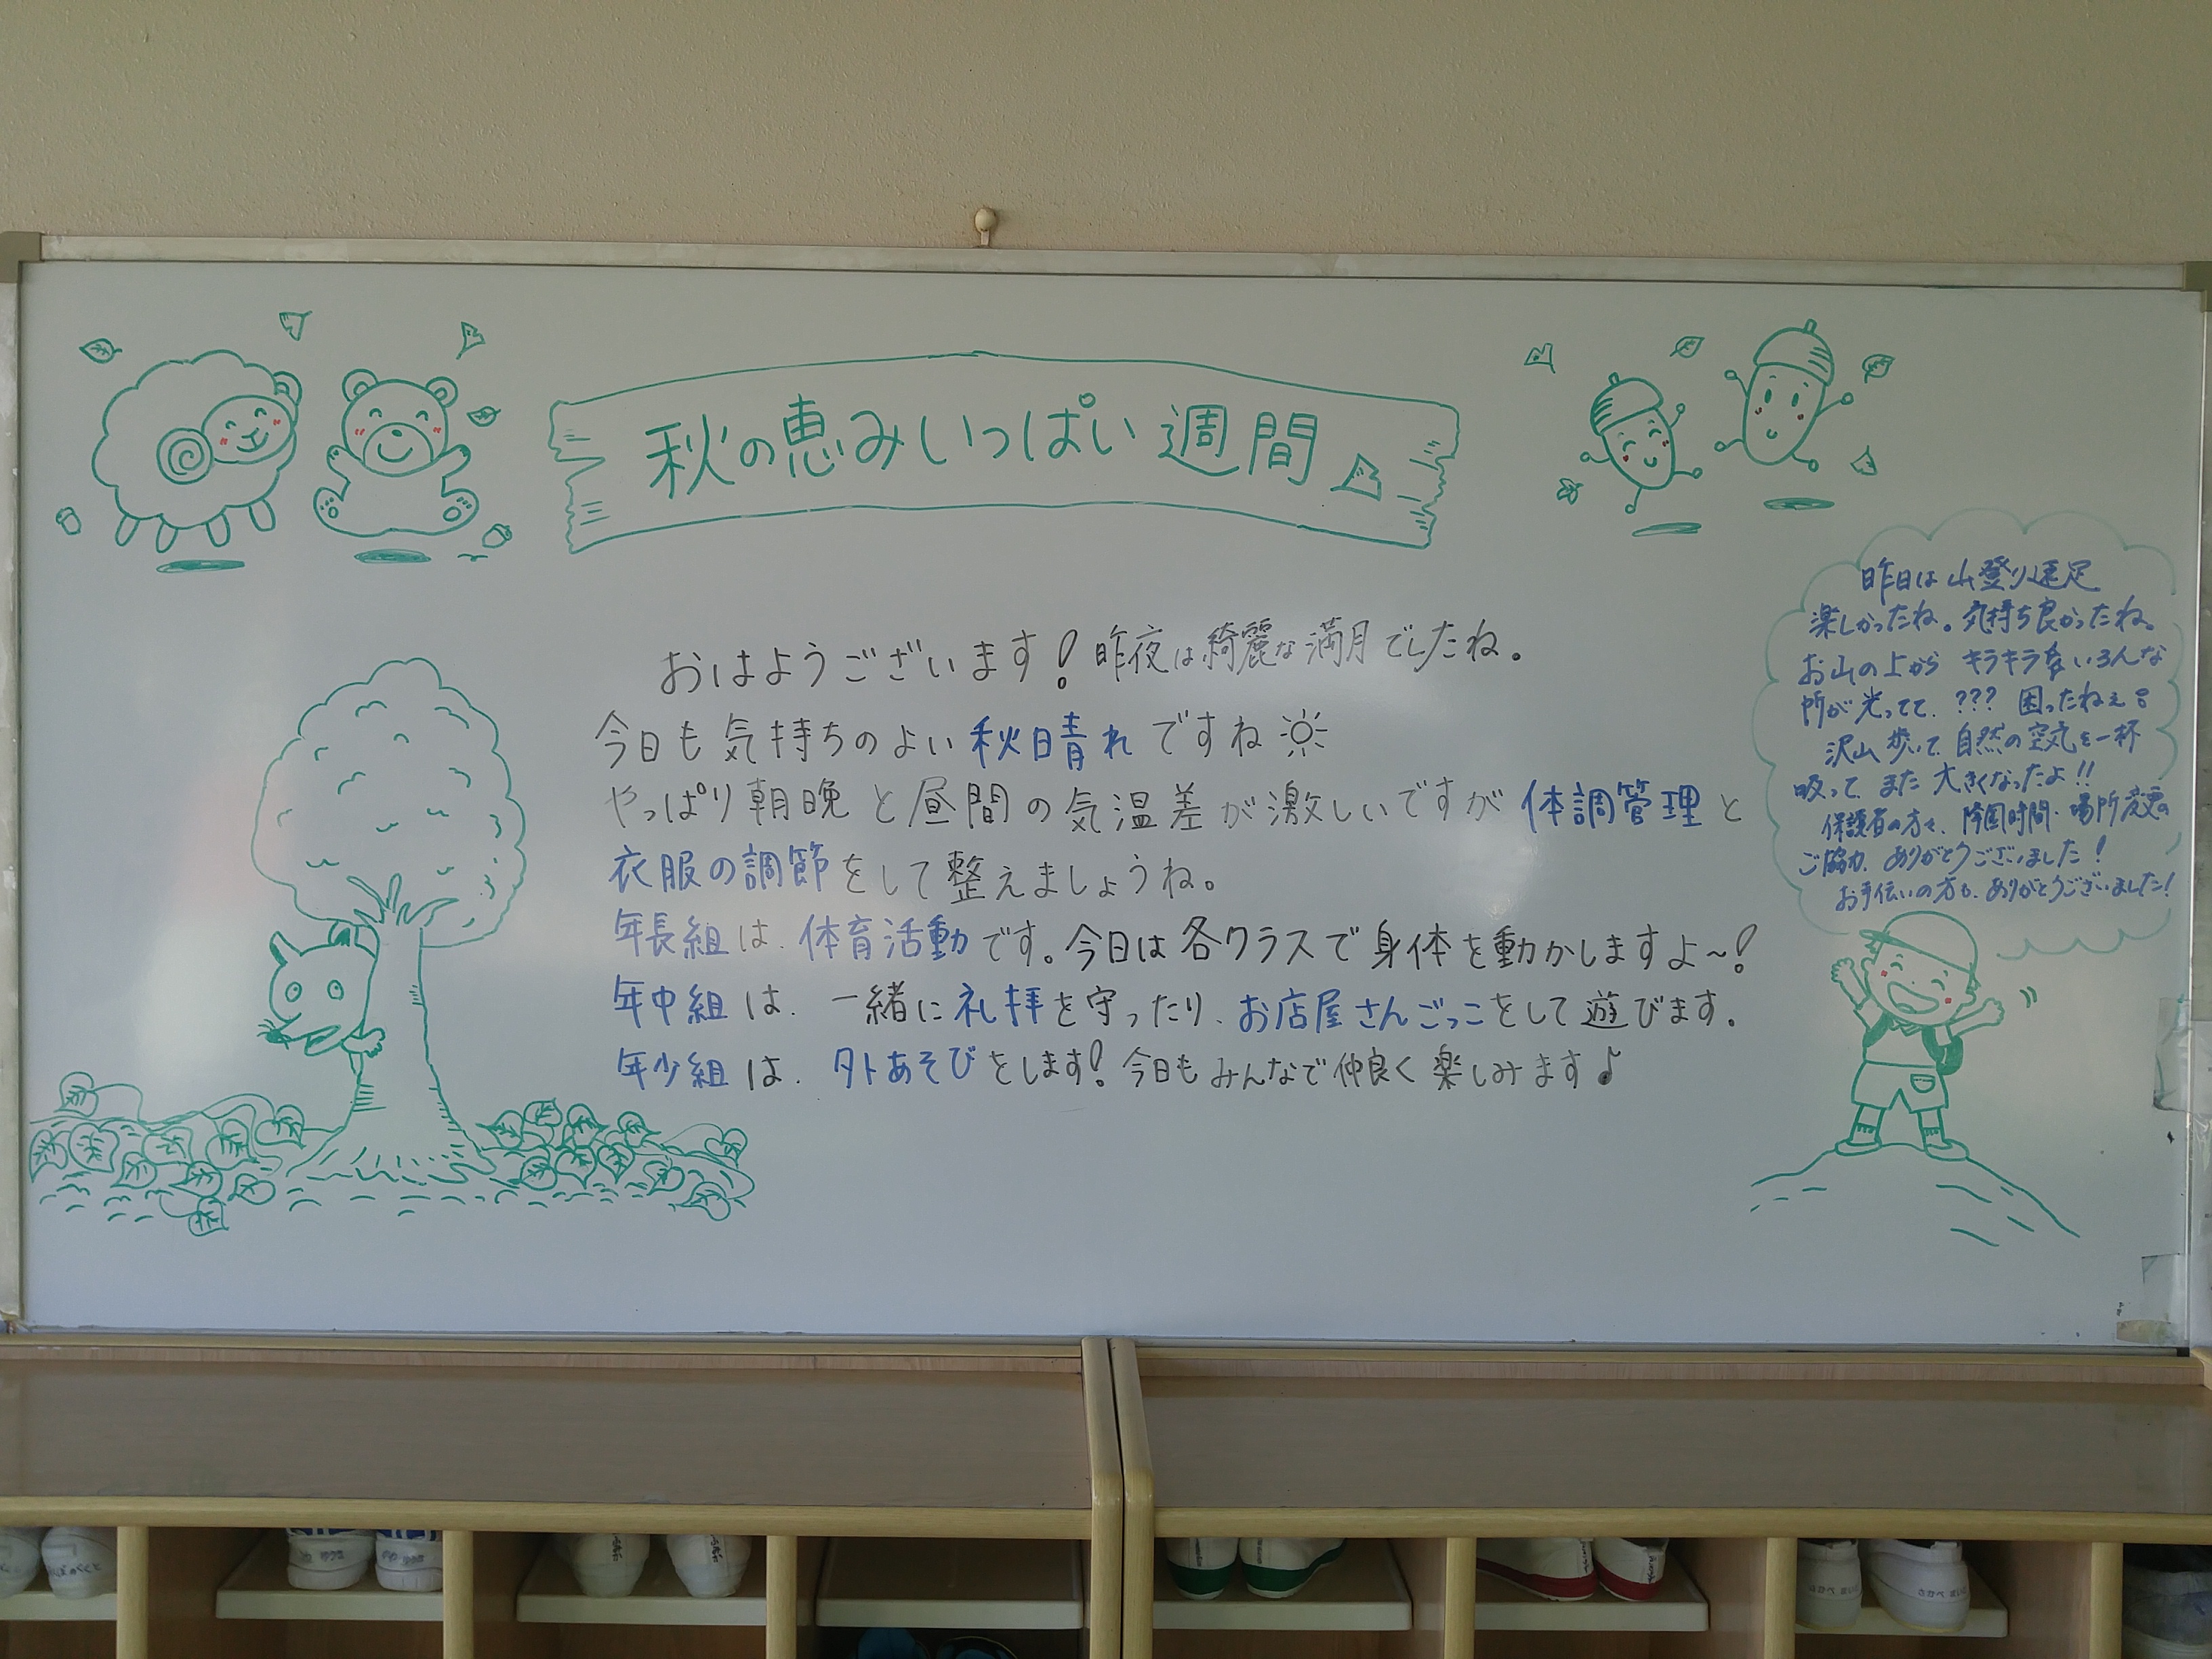 秋の恵みいっぱい週間
おはようございます!昨夜は綺麗な満月でしたね。
今日も気持ちのよい秋日晴れですね
やっぱり朝晩と昼間の気温差が激しいですが体調管理と
衣服の調節をして整えましょうね。
年長組は、体育活動です。今日は各クラスで身体を動かしますよ〜!
年中組は、一緒に礼拝を守ったり、お店屋さんごっこをして遊びます。
年少組は、外あそびをします!今日もみんなで仲良く楽しみます♪
昨日は山登り遠足
楽しかったね。気持ち良かったね。
お山の上から キラキラ いろんな
所が光ってて、??? 困ったねぇ
沢山歩いて、自然の空気を一杯
吸って、また大きくなったよ!!
保護者の方々、降園時間・場所変更の
ご協力、ありがとうございました!
お手伝いの方も、ありがとうございました!